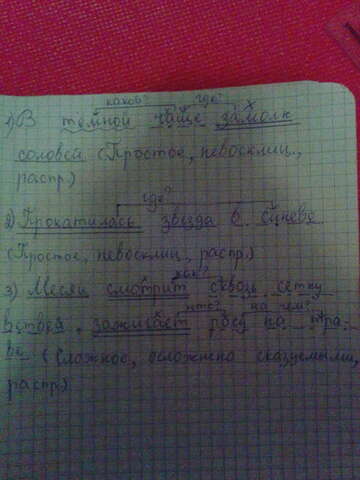 какой? где?
1) В темной чаще замолк
соловей (Простое, невосклиц.,
распр.)
где?
2) Прокатилась звезда в синеве
(Простое, невосклиц., распр.)
как?
3) Месяц смотрит сквозь сетку
что? на чем?
ветвей, зажигает росу на тра-
ве (Сложное, осложнено сказуемыми,
распр.)